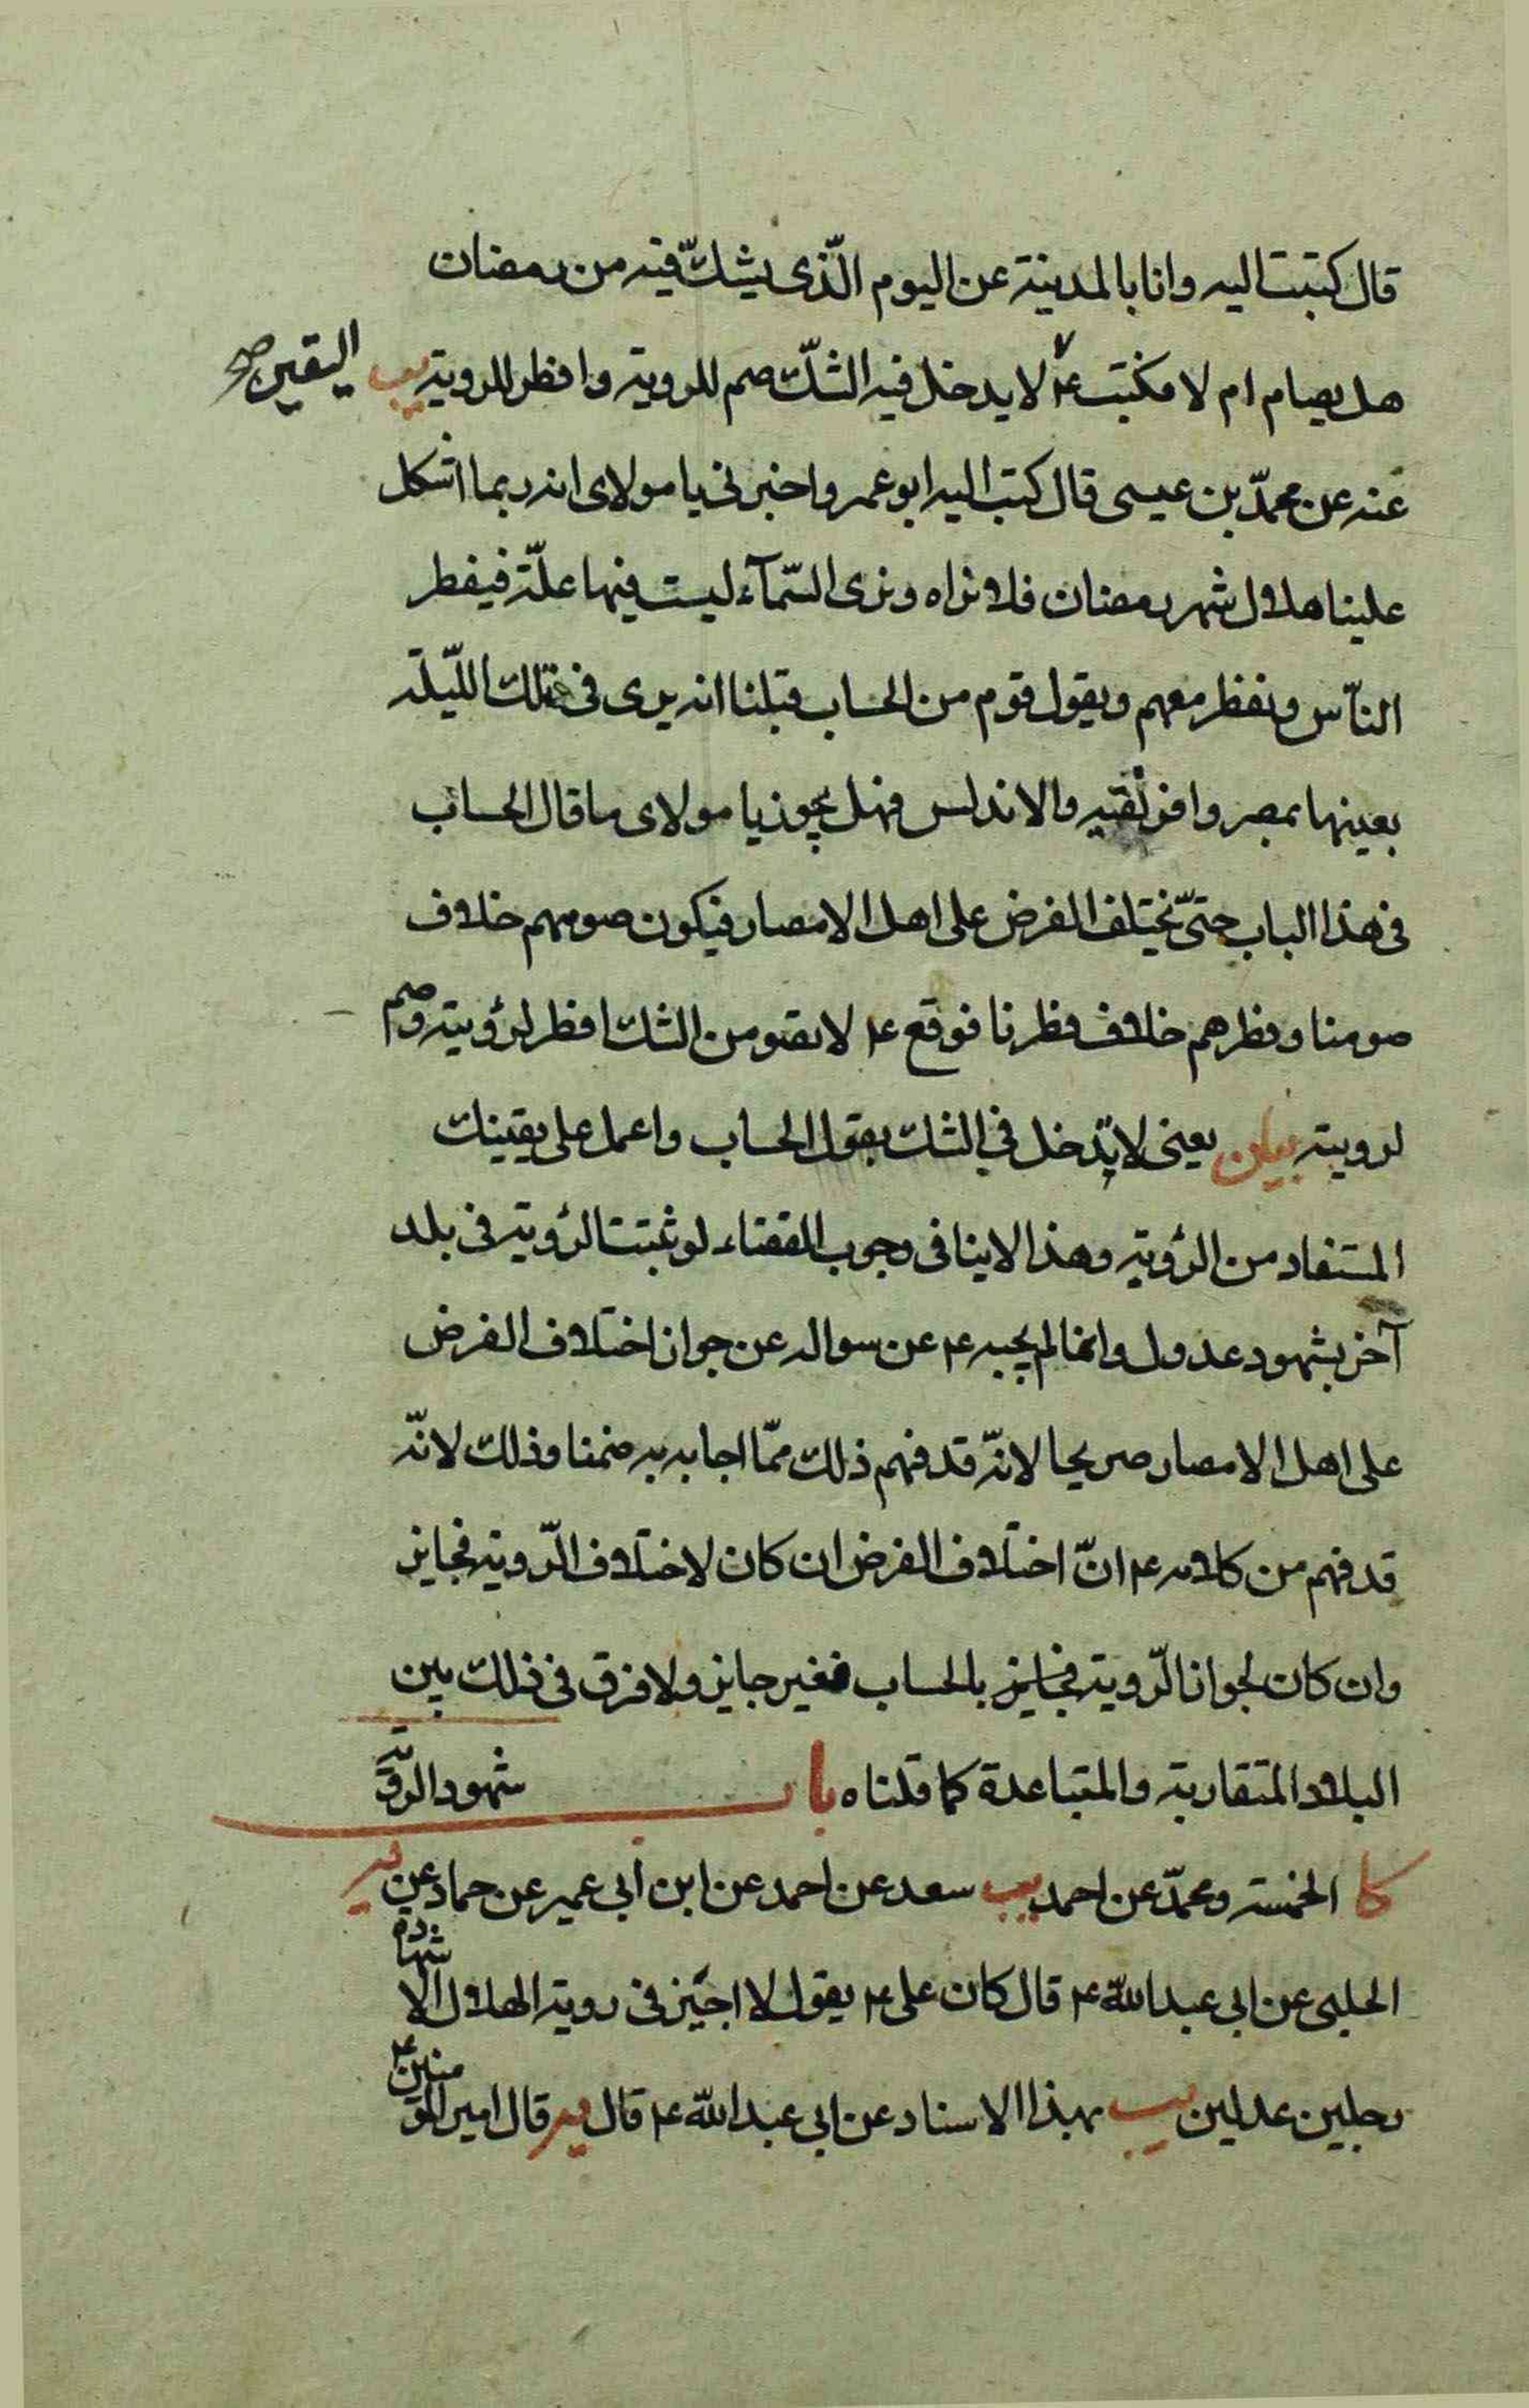 قال كتبت اليه وانا بالمدينة عن اليوم الّذى يشكّ فيه من رمضان
هل يصام ام لا فكتبت ع٧ لا يدخل فيه الشكّ صم للروية وافطر للروية يب
اليقين صح
عنه عن محمدّ بن عيسى قال كتب اليه ابو عمر واخبرنى يا مولاى انه ربما اشكل
علينا هلال شهر رمضان فلا نراه ونرى السّمآء ليست فيها علّة فيفطر
النّاس ونفطر معهم ويقول قوم من الحساب قبلنا انه يرى فى تلك اللّيلة
بعينها بمصر وافريقيه والاندلس فهل يجوز يا مولاى ما قال الحساب
فى هذا الباب حتىّ يختلف الفرض على اهل الامصار فيكون صومهم خلاف
صومنا وفطرهم خلاف فطرنا فوقع ع لا تصومن الشك افطر لرؤيته وصم
لرويته بيان يعنى لا تدخل في الشك بقول الحساب واعمل على يقينك
المستفاد من الرؤية وهذا لا ينافى وجوب القضاء لو ثبتت الرؤية فى بلد
آخر بشهود عدول وانما لم يجبه ع عن سواله عن جواز اختلاف الفرض
على اهل الامصار صريحا لانّه قد فهم ذلك ممّا اجابه به ضمنا وذلك لانّه
قد فهم من كلامه ع انّ اختلاف الفرض ان كان لاختلاف الرّوية فجايز
وان كان لجواز الرّوية بالحساب فغير جايز ولا فرق فى ذلك بين
البلاد المتقاربة والمتباعدة كما قلناه باب شهود الروية
كا الخمسة ومحمدّ عن احمد يب سعد عن احمد عن ابن ابى عمير عن حماد عن
الحلبى عن ابى عبد اللّه ع قال كان على ع يقول لا اجيز فى روية الهلال الا شهادة
رجلين عدلين يب بهذا الاسناد عن ابى عبد اللّه ع قال قال امير المومنين ع